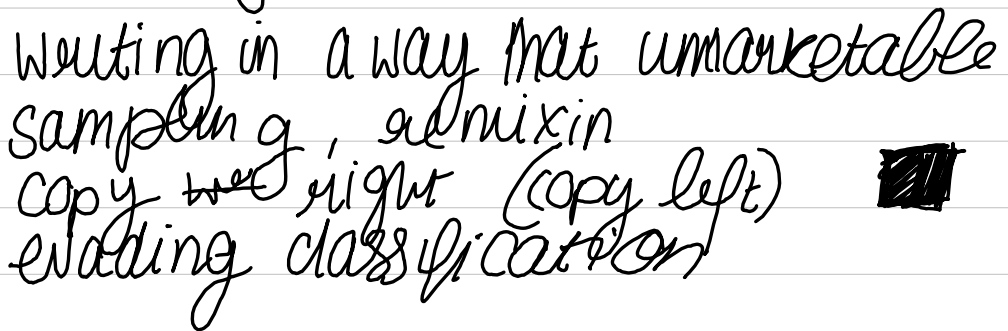 writing in a way that unmarketable
sampling, remixin
copy right (copy left)
evading classification